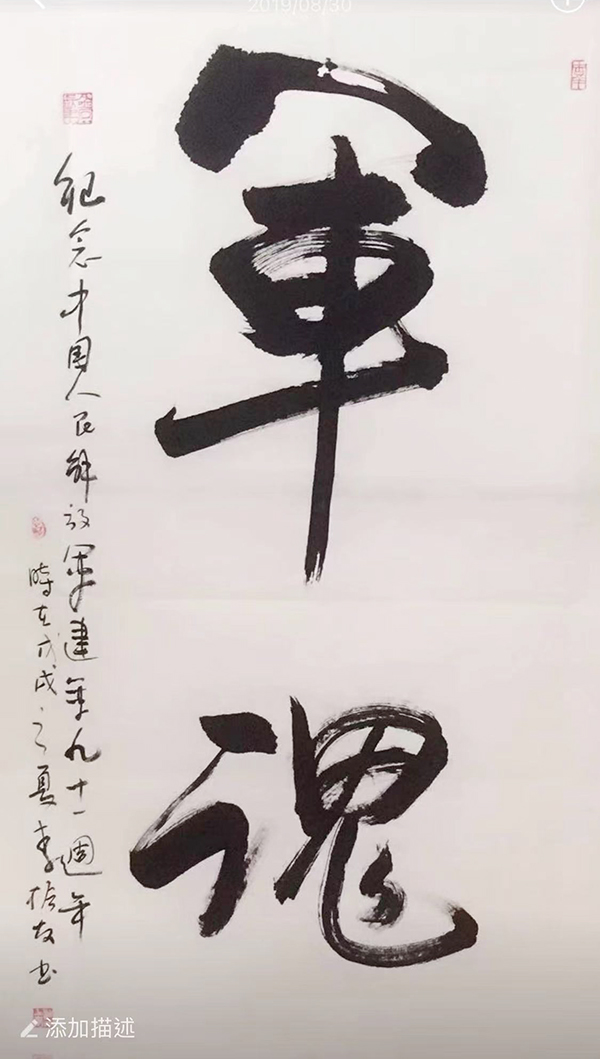 2019/08/30
軍魂
紀念中国人民解放軍建軍九十一週年
時在戊戌之夏李 友书
添加描述